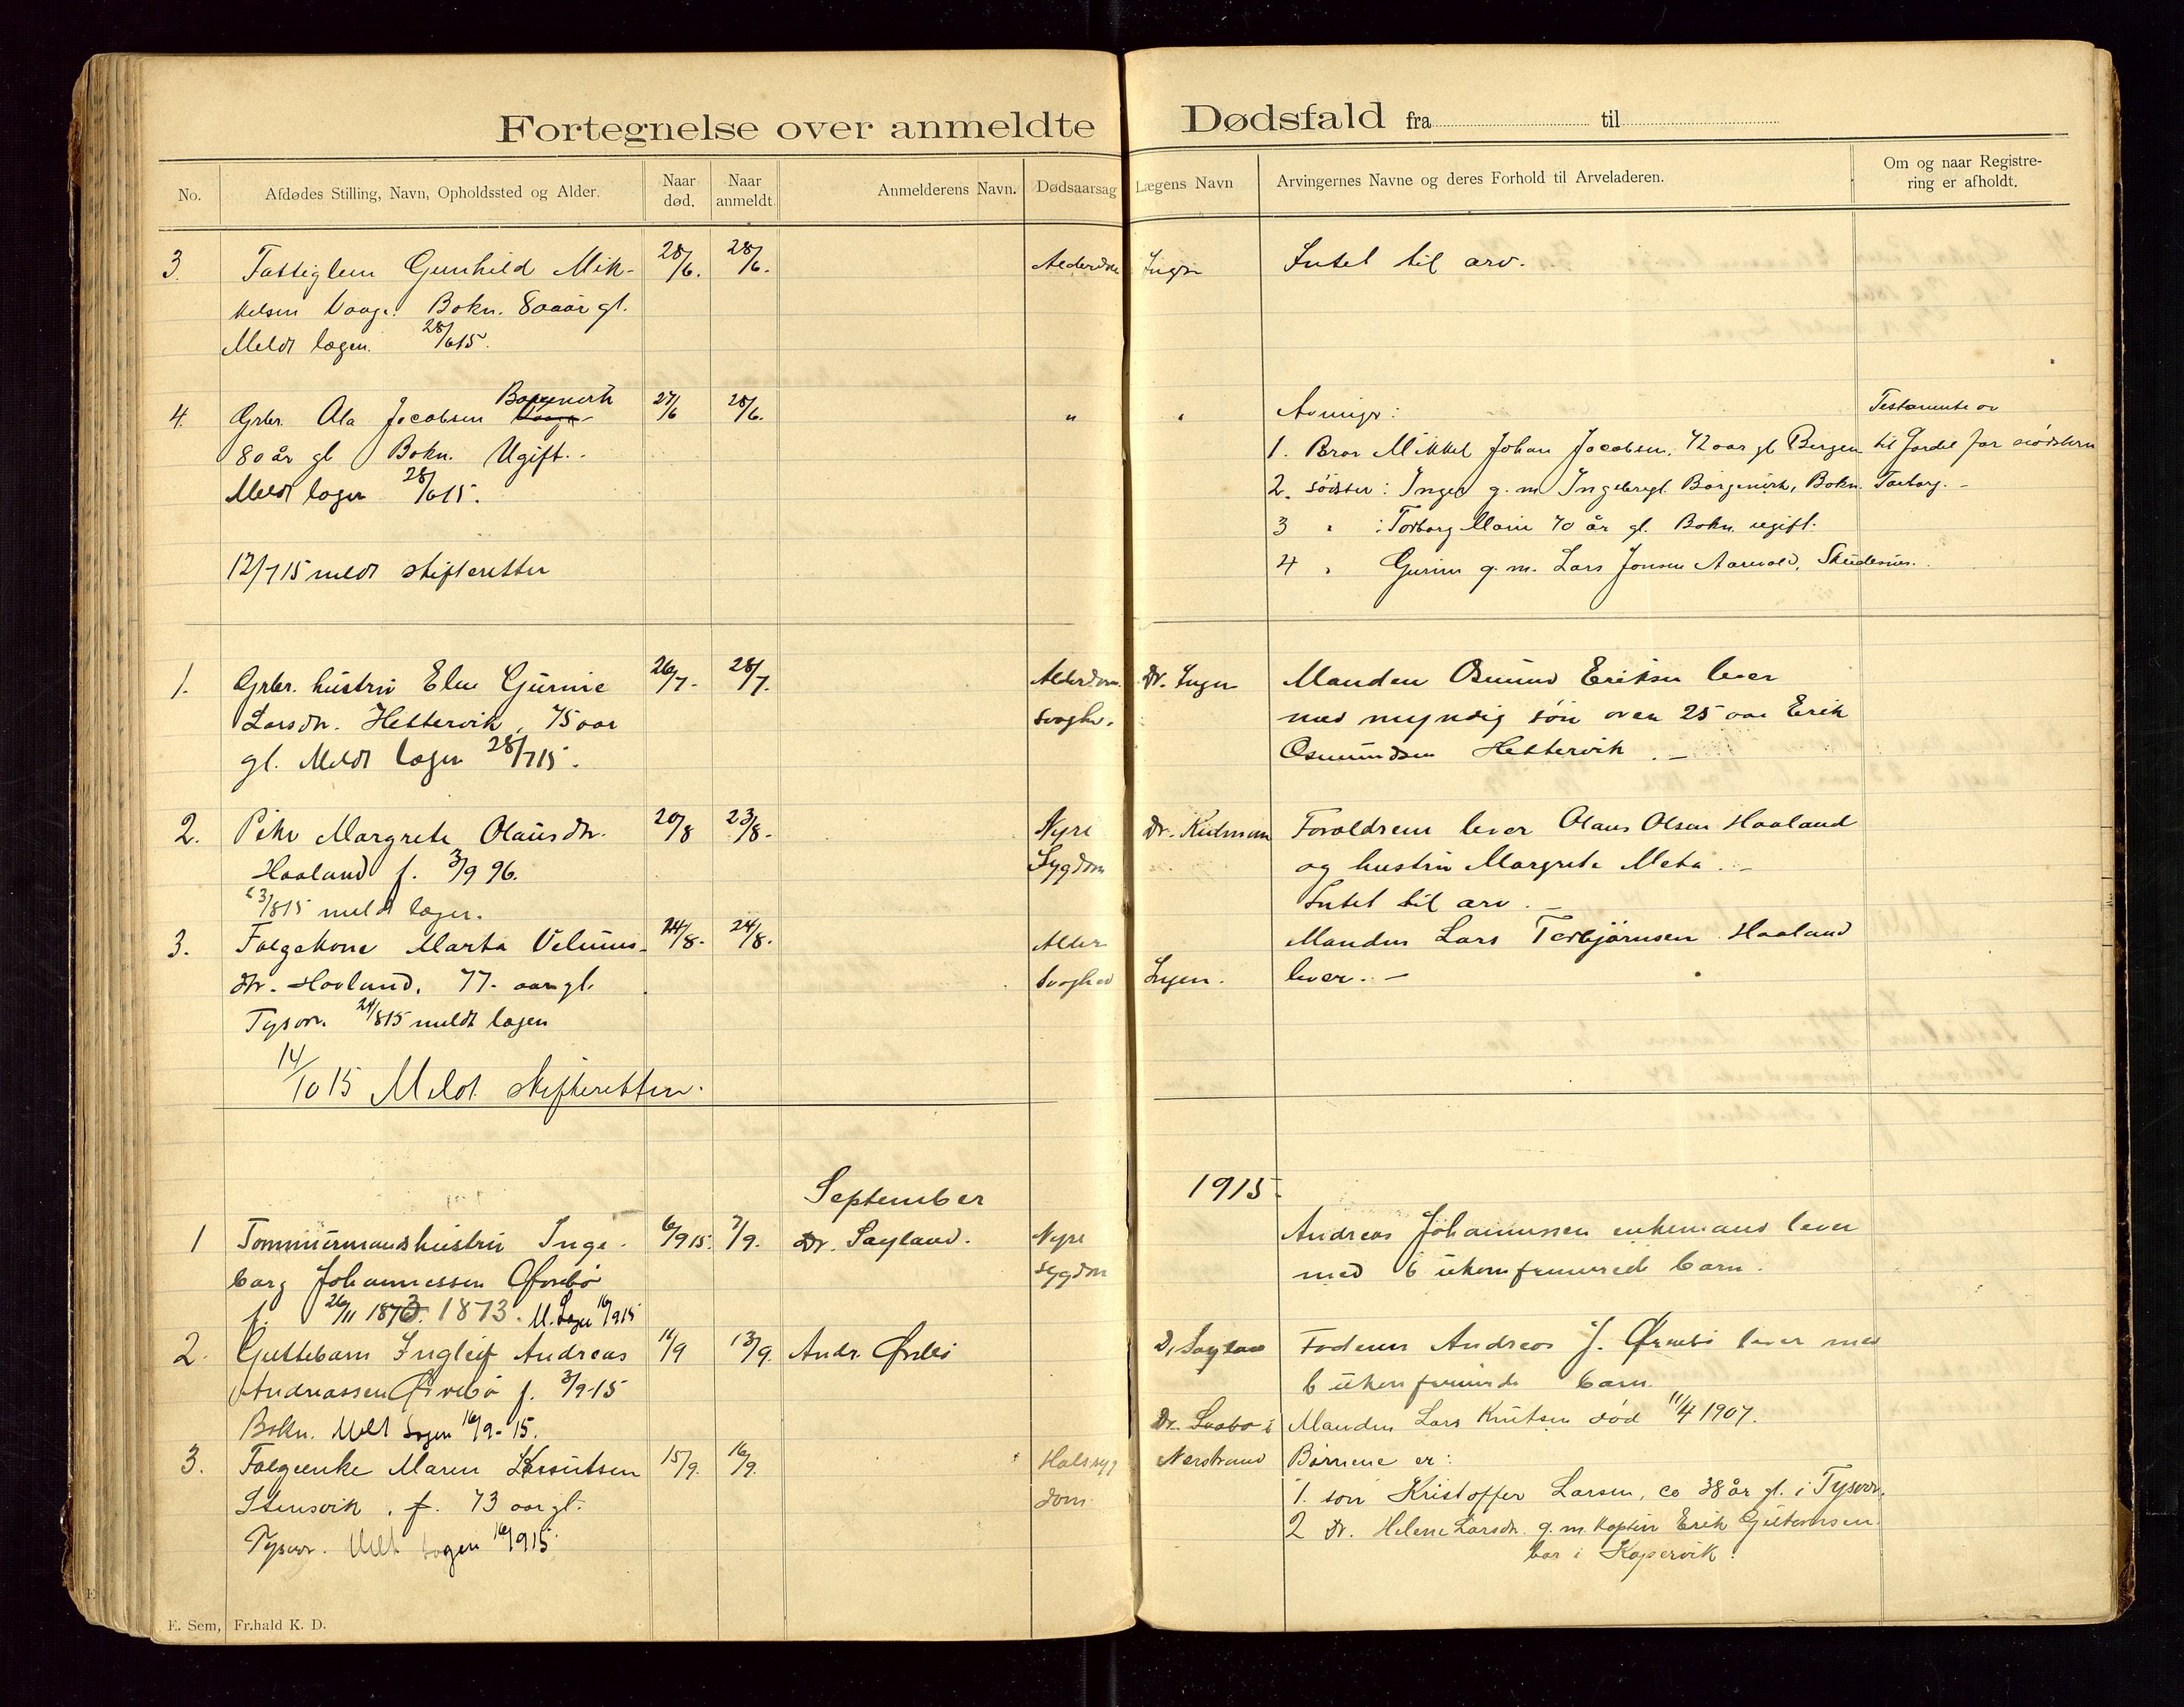 Fortegnelse over anmeldte Dødsfald fra til
No. Afdødes Stilling, Navn, Opholdssted og Alder. Naar død. Naar anmeldt. Anmelderens Navn. Dødsaarsag Lægens Navn Arvingernes Navne og deres Forhold til Arveladeren. Om og naar Registrering er afholdt.
3. Fattiglem Gunhild Mik- 28/6. 28/6. Ingen Intet til arv.
kelsen Vaage. Bokn. 80 aar gl.
Meldt lagen. 28/6 15.
Boggenvik
4. Grbr. Ola Jacobsen 27/6 28/6. " " Testamente
80 år gl Bokn. Ugift. 1. Bror Mikkel Johan Jacobsen, 72 aar gl Bergen til fordel for
Meldt lagen 28/6 15. 2. søster: Inger g. m. Bokn. Torborg.
3 " : Torborg Marie 70 år gl. Bokn. ugift.
12/7 15 meldt skifteretten
4 " g. m. Lars Jonsen
1. Grbr. hustru Elen Gurine 26/7. 28/7. Alderdom Dr. Ingen Manden Osmund Eriksen lever
Larsdr. Hettervik, 75 aar svaghe. med myndig søn over 25 aar Erik
gl. Meldt lagen 28/7 15. Osmundsen Hettervik.
2. Pike Margrete Olausdr. 20/8 23/8. Nyre Dr. Forældrene lever Olaus Olsen Haaland
Haaland f. 3/9 96. Sygdom og hustru Margrete Meta.
23/8 15 meldt lagen. Intet til arv.
3. Folgekone Marta 24/8. 24/8. Alder Manden Lars Torbjørnsen Haaland
dr. Hovland. 77 aar gl. svaghed Ingen. lever.
Tysvær. 24/8 15 meldt lagen
14/10 15 Meldt skifteretten.
September 1915.
1 Tømmermandshustru Inge- 6/9 15. 7/9. Dr. Sayland. Nyre Andreas Johannessen enkemand lever
borg Johannessen Øvrebø sygdom med 6 ukonfirmerede barn.
f. 26/11 1873. 1873. M. Lagen 16/9 15
2. Guttebarn Ingleif Andreas 11/9 13/9. Andr. Øvrebø Dr Sayland Faderen Andreas J. Øvrebø lever med
Andreassen Øvrebø f. 3/9-15 6 ukonfirmerede barn.
Bokn. Meldt lagen 16/9-15. Dr. i Manden Lars Knutsen død 11/4 1907.
3. Folgeenke Maren Knutsen 15/9. 16/9. Halssyg Nerstrand Børnene er:
Stensvik. f. 73 aar gl. dom. 1. søn Kristoffer Larsen, ca 38 år gl. i Tysvær.
Tysvær. Meldt lagen 16/9 15 2 Dr. Helene Larsdr. g. m. kaptein Erik
bor i Kopervik.
E. Sem, Fr.hald K. D.